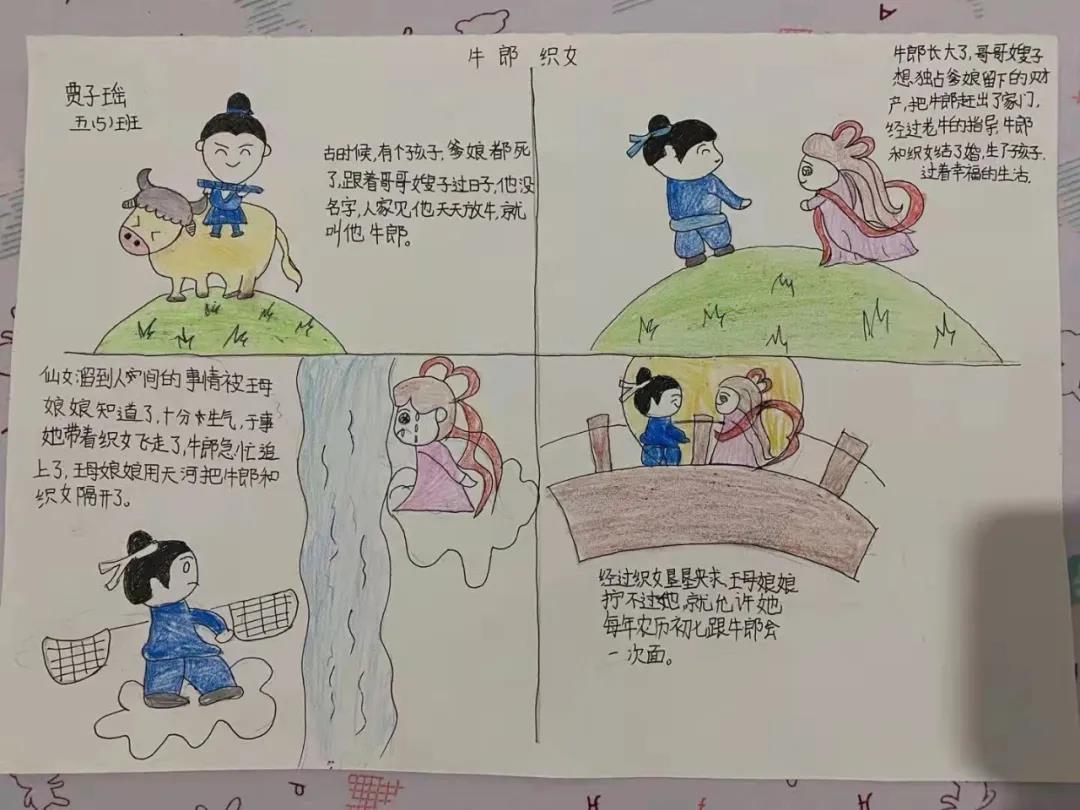 牛郎织女
贾子瑶
五(5)班
古时候,有个孩子,爹娘都死
了,跟着哥哥嫂子过日子,他没
名字,人家见他天天放牛,就
叫他牛郎。
牛郎长大了,哥哥嫂子
想独占爹娘留下的财
产,把牛郎赶出了家门,
经过老牛的指导,牛郎
和织女结了婚,生了孩子.
过着幸福的生活.
仙女溜到人间的事情被王母
娘娘知道了,十分生气,于事
她带着织女飞走了,牛郎急忙追
上了,王母娘娘用天河把牛郎和
织女隔开了。
经过织女恳恳央求,王母娘娘
拧不过她,就允许她
每年农历初七跟牛郎会
一次面。